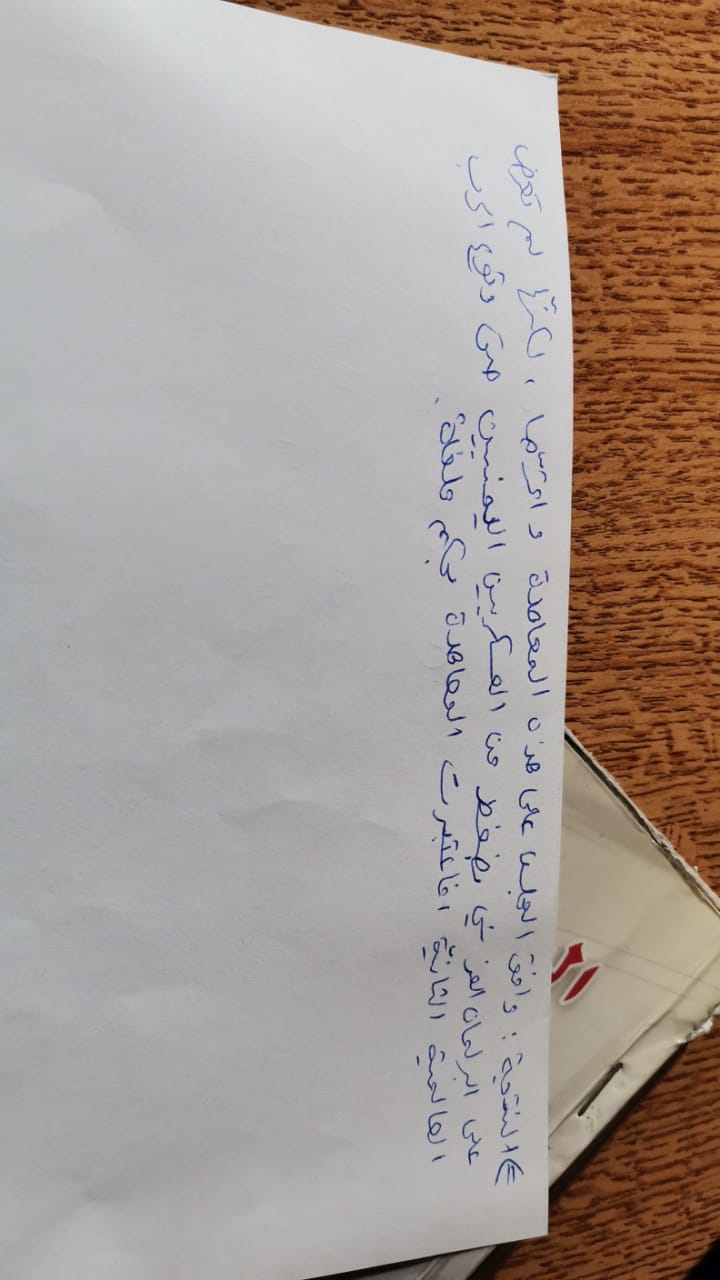 ⇐ النتيجة : وافق المجلس على هذه المعاهدة و احترمها ، لكنّها لم تعرض
على البرلمان الفرنسي بضغط من العسكريين اليمنيين حتى وقوع الحرب
العالمية الثانيّة افاعتبرت المعاهدة بحكم ملغاة .